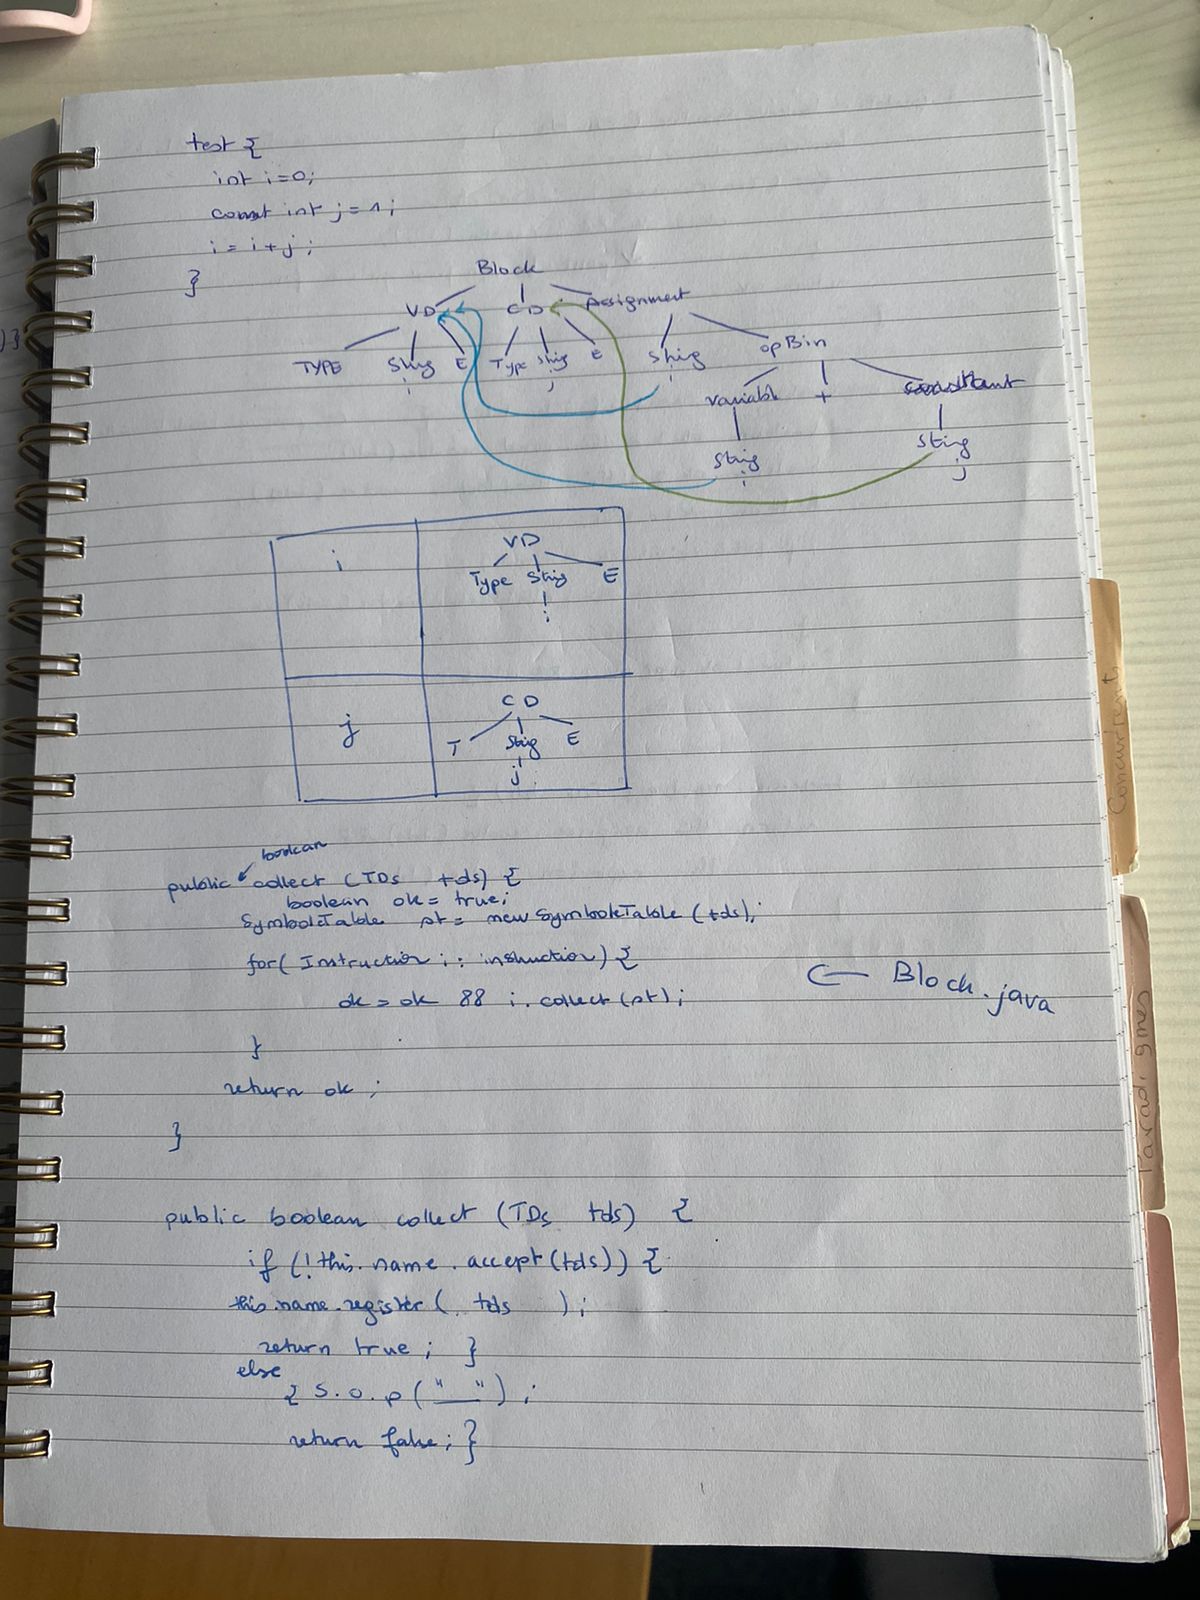 test {
int i=0;
const int j = 1;
i = i + j ;
}
Block
VD CD Assignment
TYPE String E Type String E String opBin
i j i variable + constant
String String
i j
i VD
Type String E
i
j CD
T String E
j
boolean
public collect (TDS tds) {
boolean ok = true;
SymboleTable st = new SymboleTable (tds);
for( Instruction i : instruction) {
ok = ok && i. collect (st) ;
← Block.java
}
return ok ;
}
public boolean collect (TDS tds) {
if (! this.name . accept (tds)) {
this.name.register ( tds ) ;
return true ; }
else
{ S.o.p ( "__" ) ;
return false ; }
Concurrent
Paradigmes